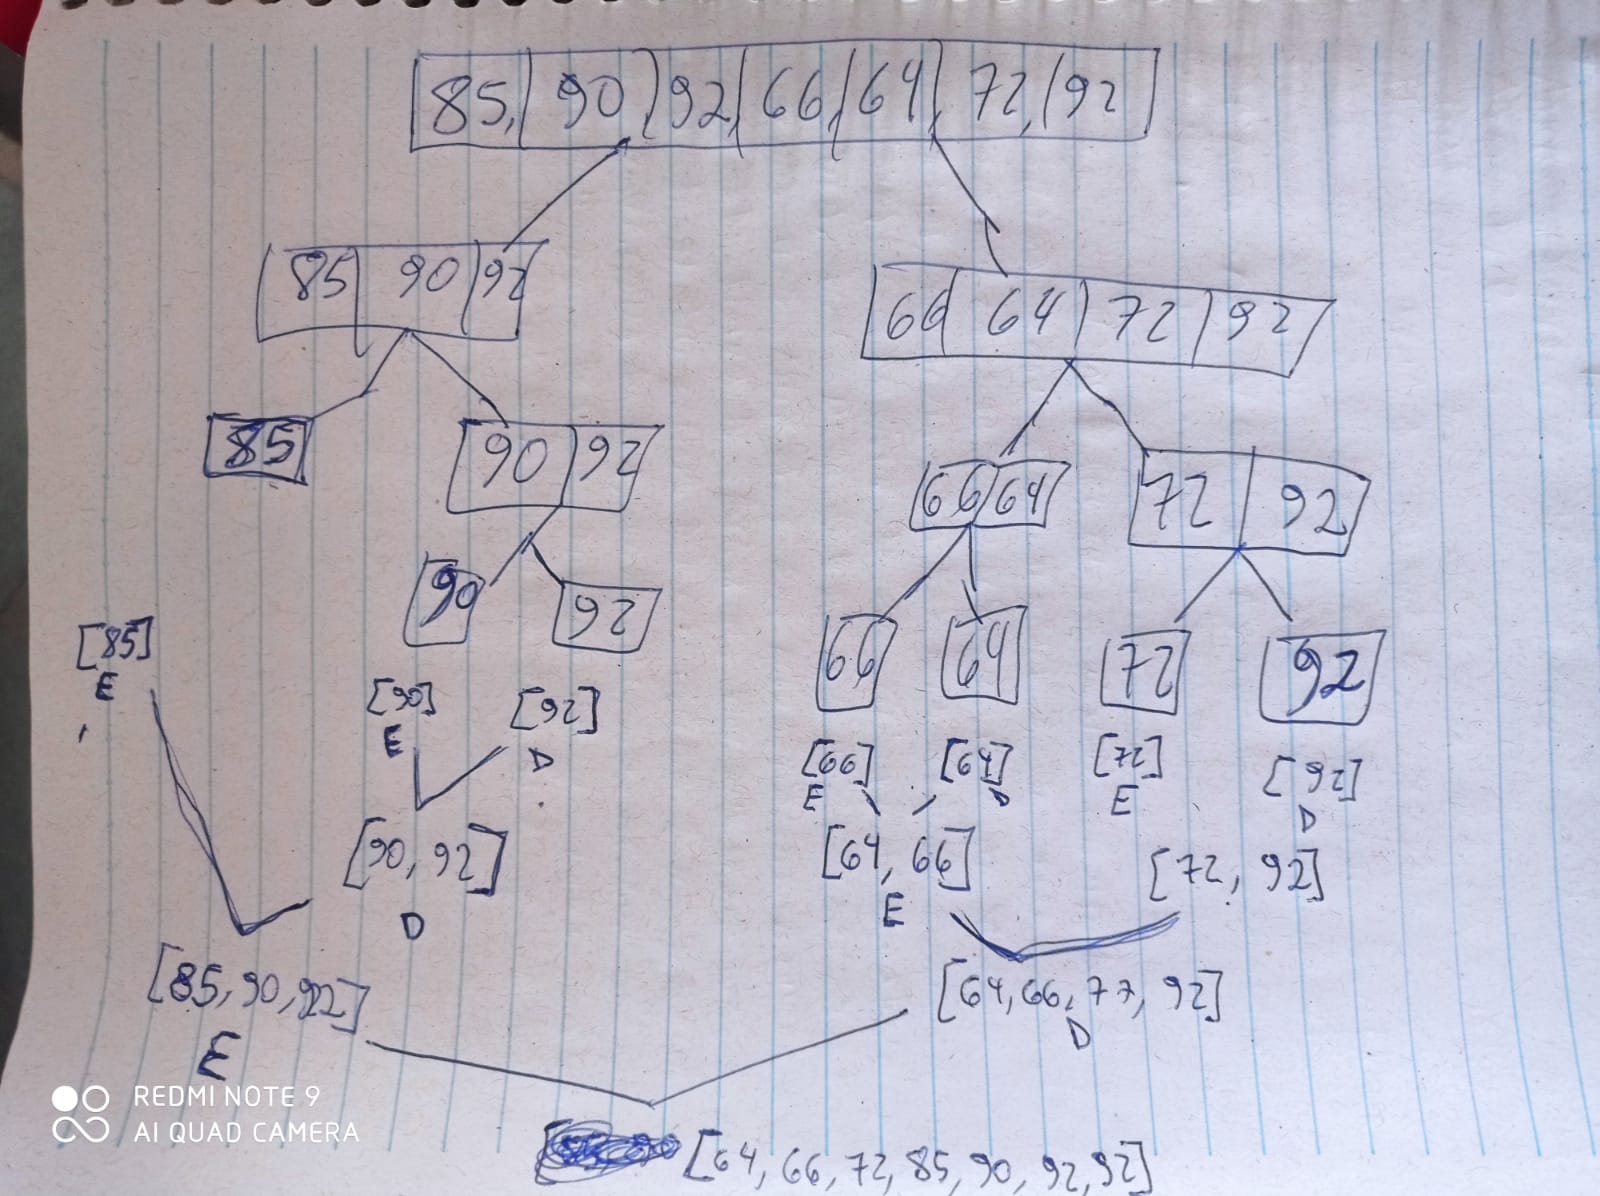 85, 90, 92, 66, 64, 72, 92
85 90 92
66 64 72 92
85
90 92
66 64
72 92
90
92
66
64
72
92
[85]
E
[90]
E
[92]
D
[66]
E
[64]
D
[72]
E
[92]
D
[90, 92]
D
[64, 66]
E
[72, 92]
[85, 90, 92]
E
[64, 66, 77, 92]
D
[64, 66, 72, 85, 90, 92, 92]
REDMI NOTE 9
AI QUAD CAMERA